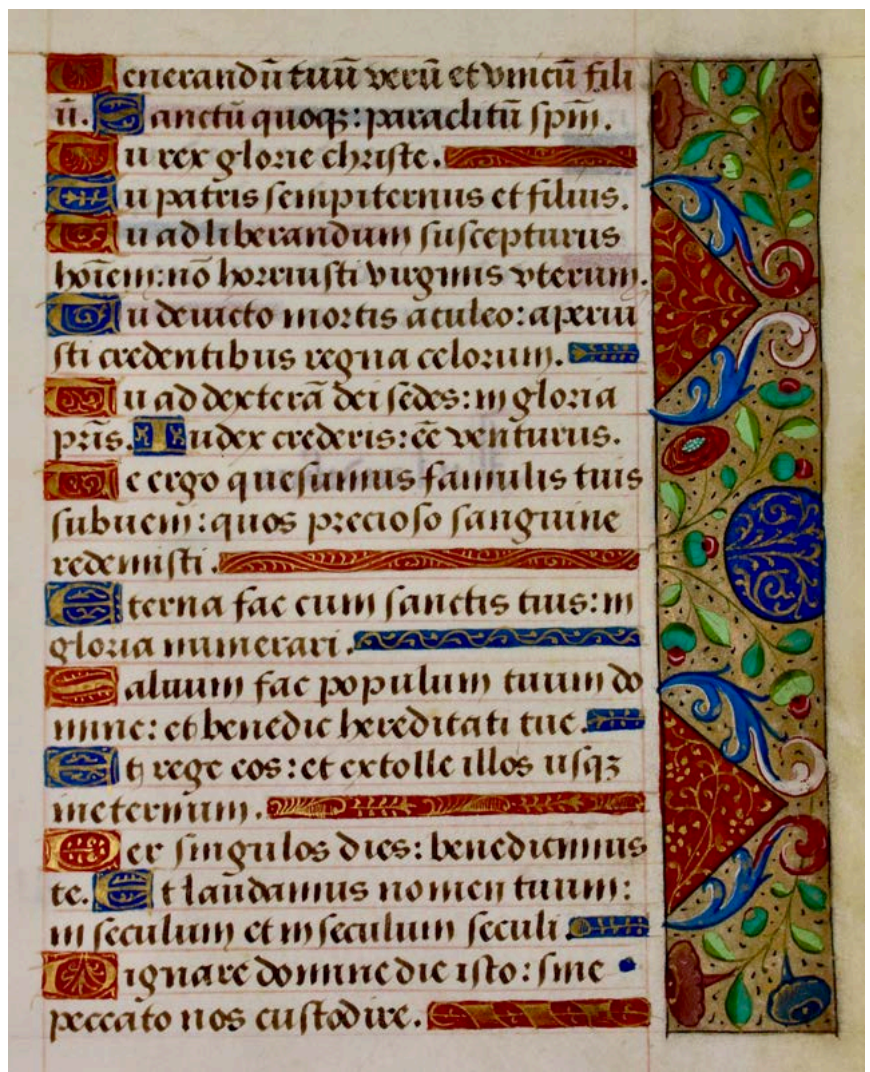 Venerandū tuū verū et vnicū fili
ū. Sanctū quoqꝫ: paraclitū sp̄m.
Tu rex glorie christe.
Tu patris sempiternus et filius.
Tu ad liberandum suscepturus
hoīem: nō horruisti virginis vterum.
Tu deuicto mortis aculeo: aperui
sti credentibus regna celorum.
Tu ad dexterā dei sedes: in gloria
pr̄is. Iudex crederis: eē venturus.
Te ergo quesumus famulis tuis
subueni: quos precioso sanguine
redemisti.
Eterna fac cum sanctis tuis: in
gloria numerari.
Saluum fac populum tuum do
mine: et benedic hereditati tue.
Et rege eos: et extolle illos usqꝫ
ineternum.
Per singulos dies: benedicimus
te. Et laudamus nomen tuum:
in seculum et in seculum seculi
Dignare domine die isto: sine
peccato nos custodire.